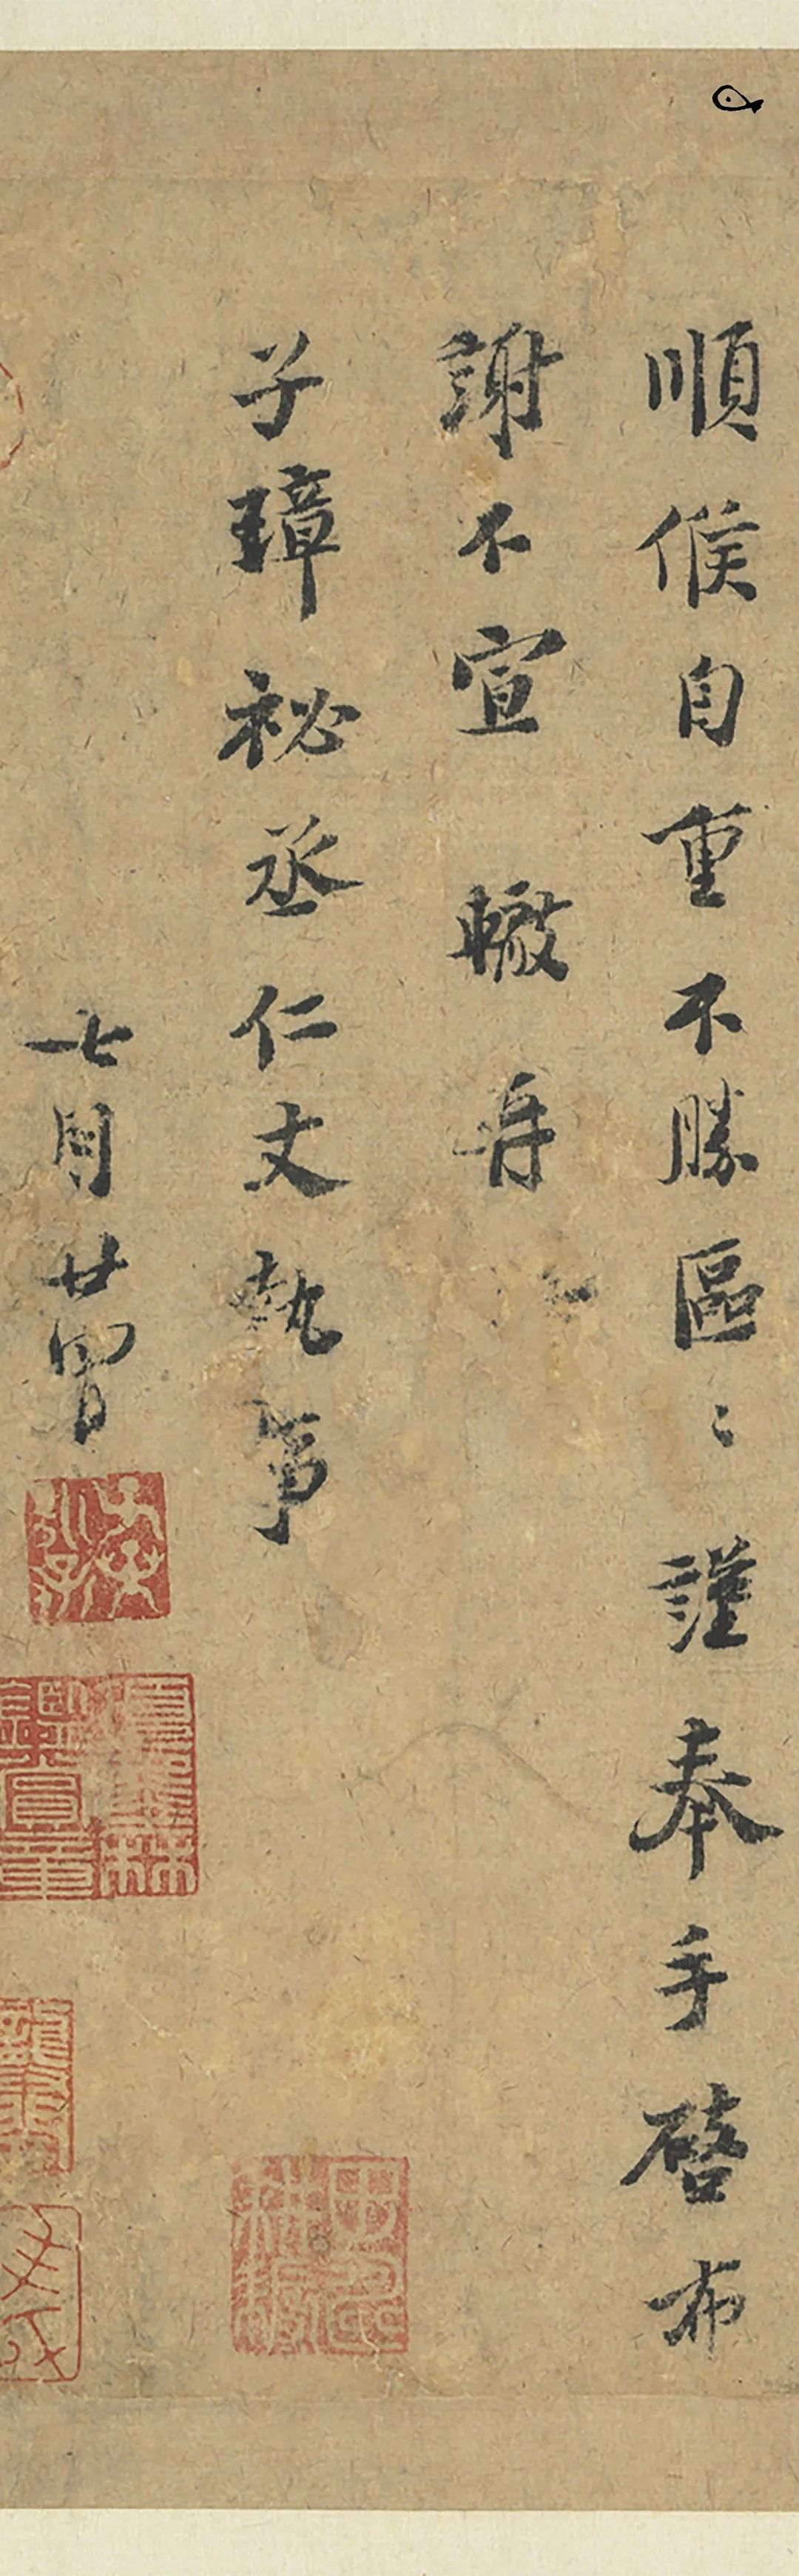 順候自重不勝區〻謹奉手啓布
謝不宣 轍再
子璋祕丞仁丈執事
七月廿四日